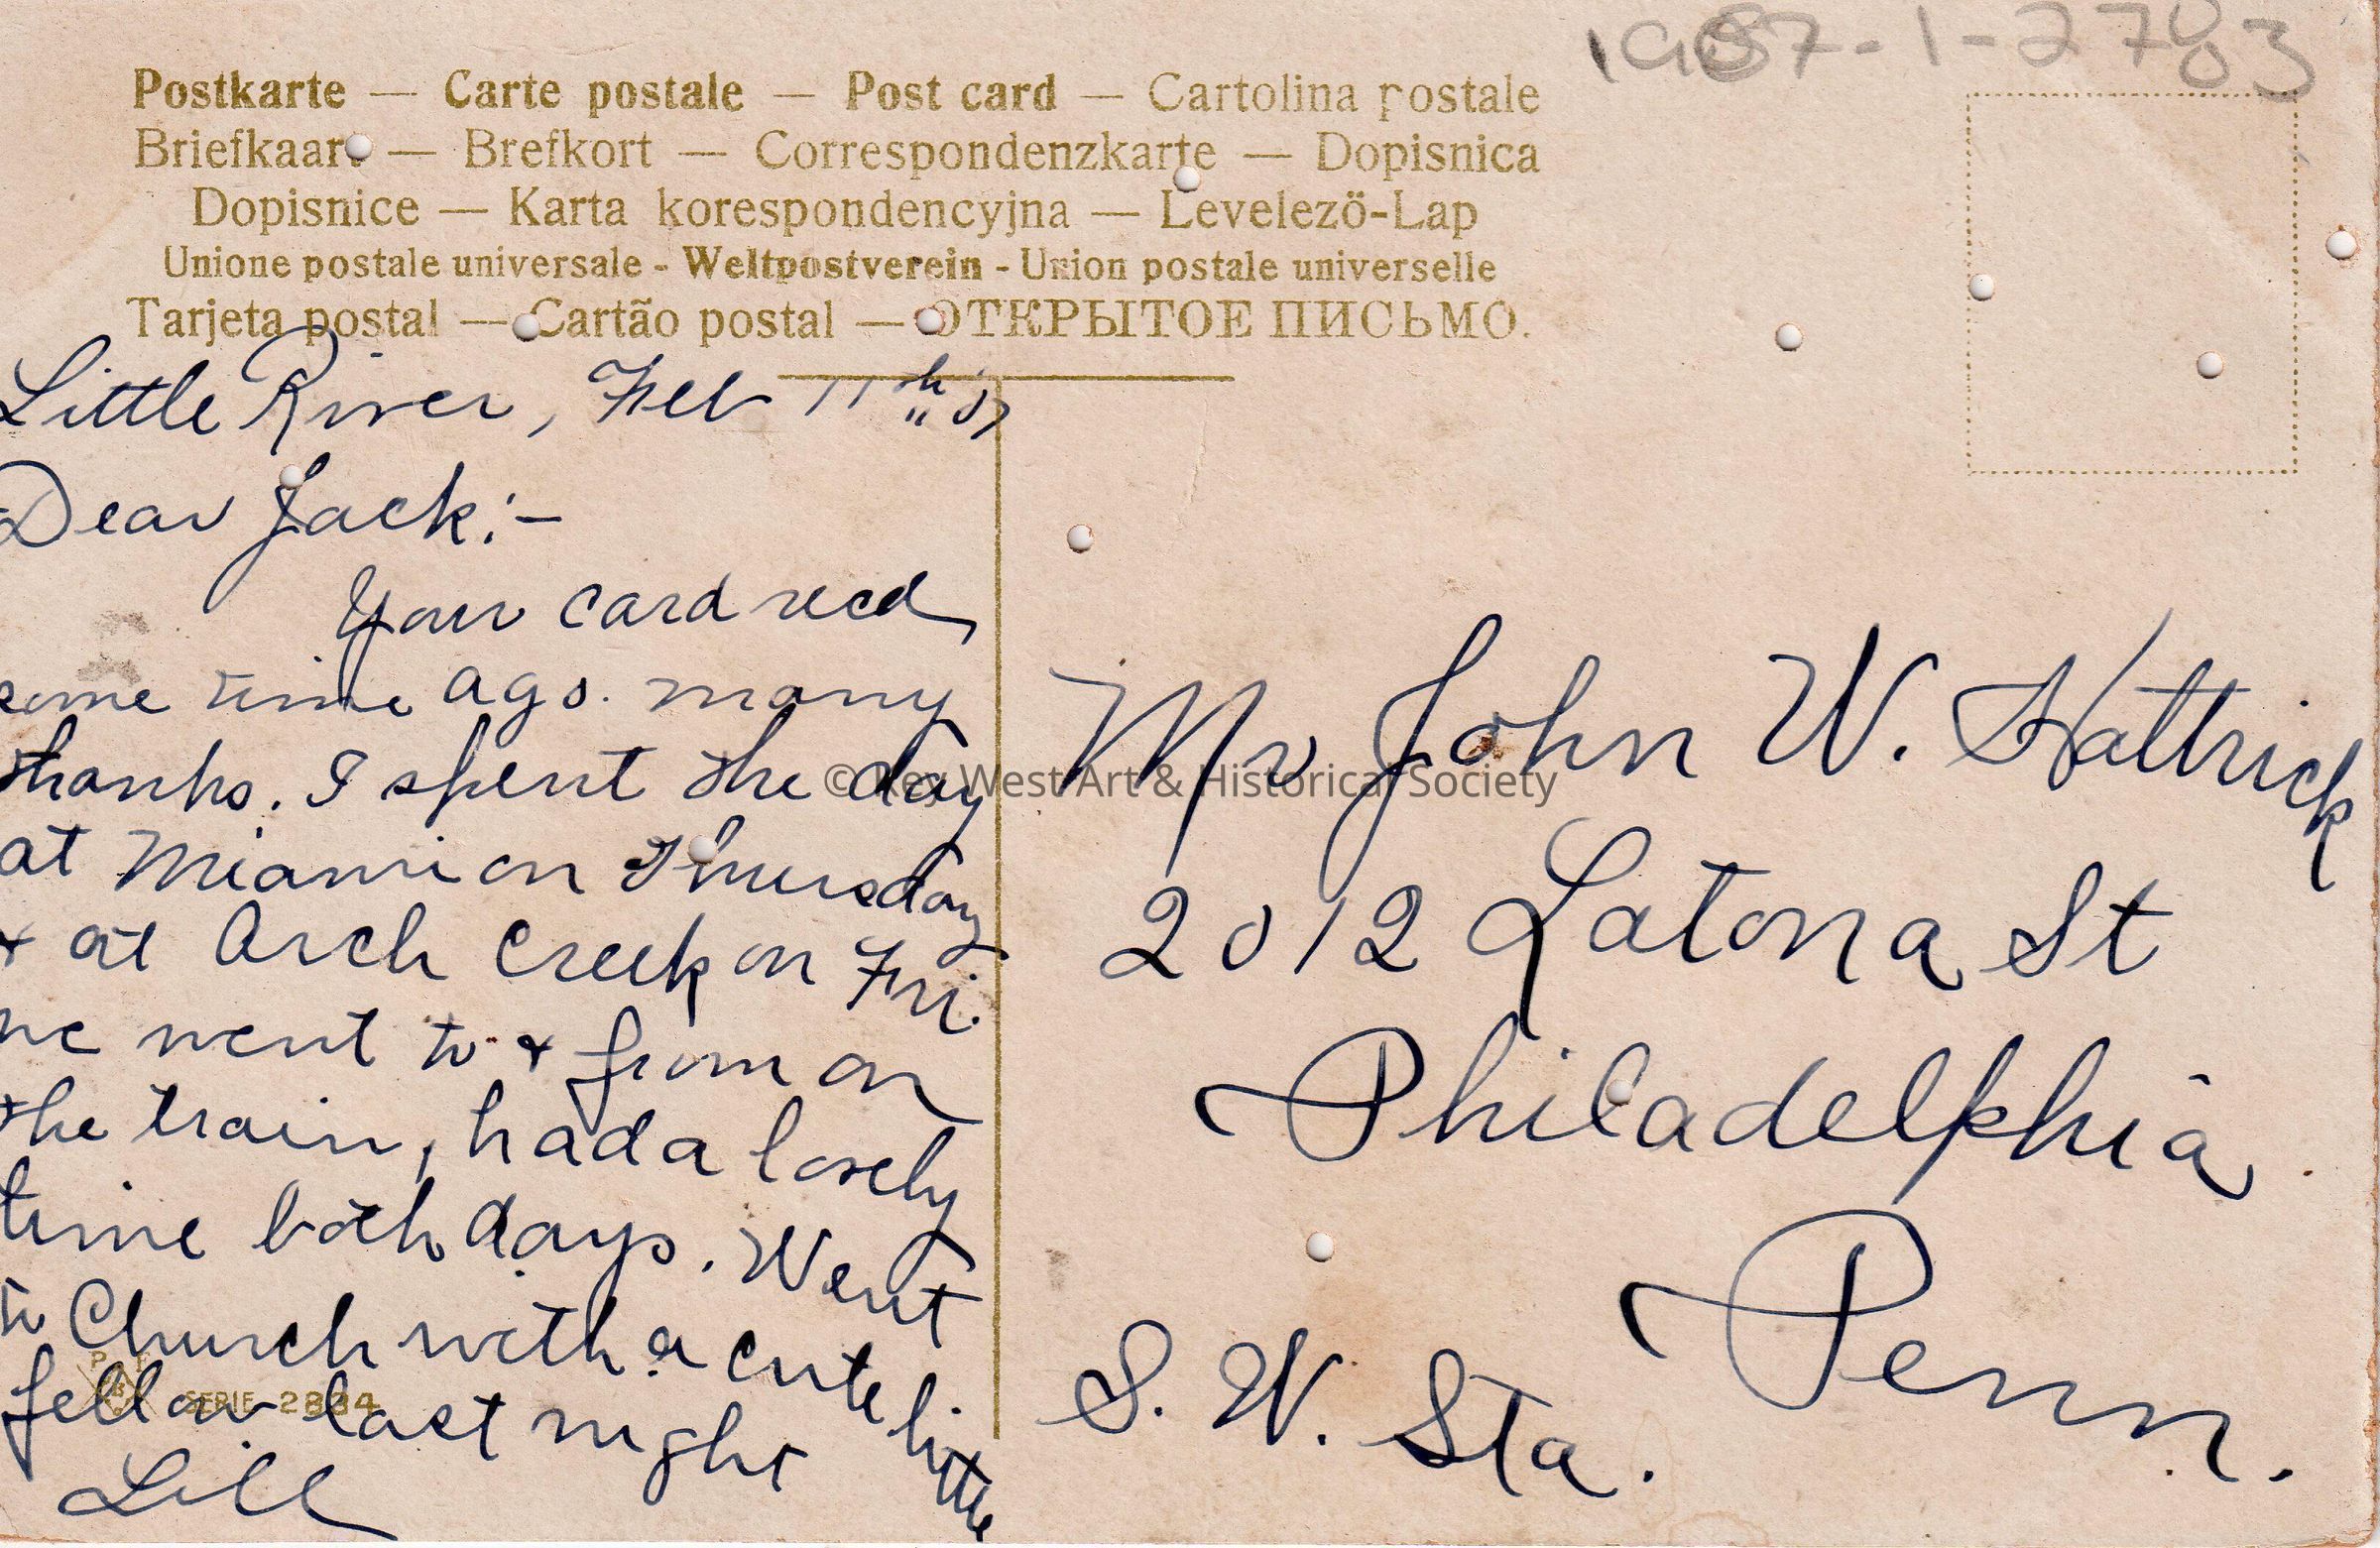 1987-1-2783
Postkarte — Carte postale — Post card — Cartolina postale
Briefkaart — Brefkort — Correspondenzkarte — Dopisnica
Dopisnice — Karta korespondencyjna — Levelező-Lap
Unione postale universale - Weltpostverein - Union postale universelle
Tarjeta postal — Cartão postal — ОТКРЫТОЕ ПИСЬМО.
Little River, Feb 11th
Dear Jack:-
Your card recd
some time ago. many
thanks. I spent the day
at Miami on Thursday
+ at Arch Creek on Fri.
we went to + from on
the train, had a lovely
time both days. Went
to Church with a cute little
fellow last night
Lill
SERIE 2884
Mr John W. Hattrick
2012 Latona St
Philadelphia
Penn.
S. W. Sta.
© Key West Art & Historical Society